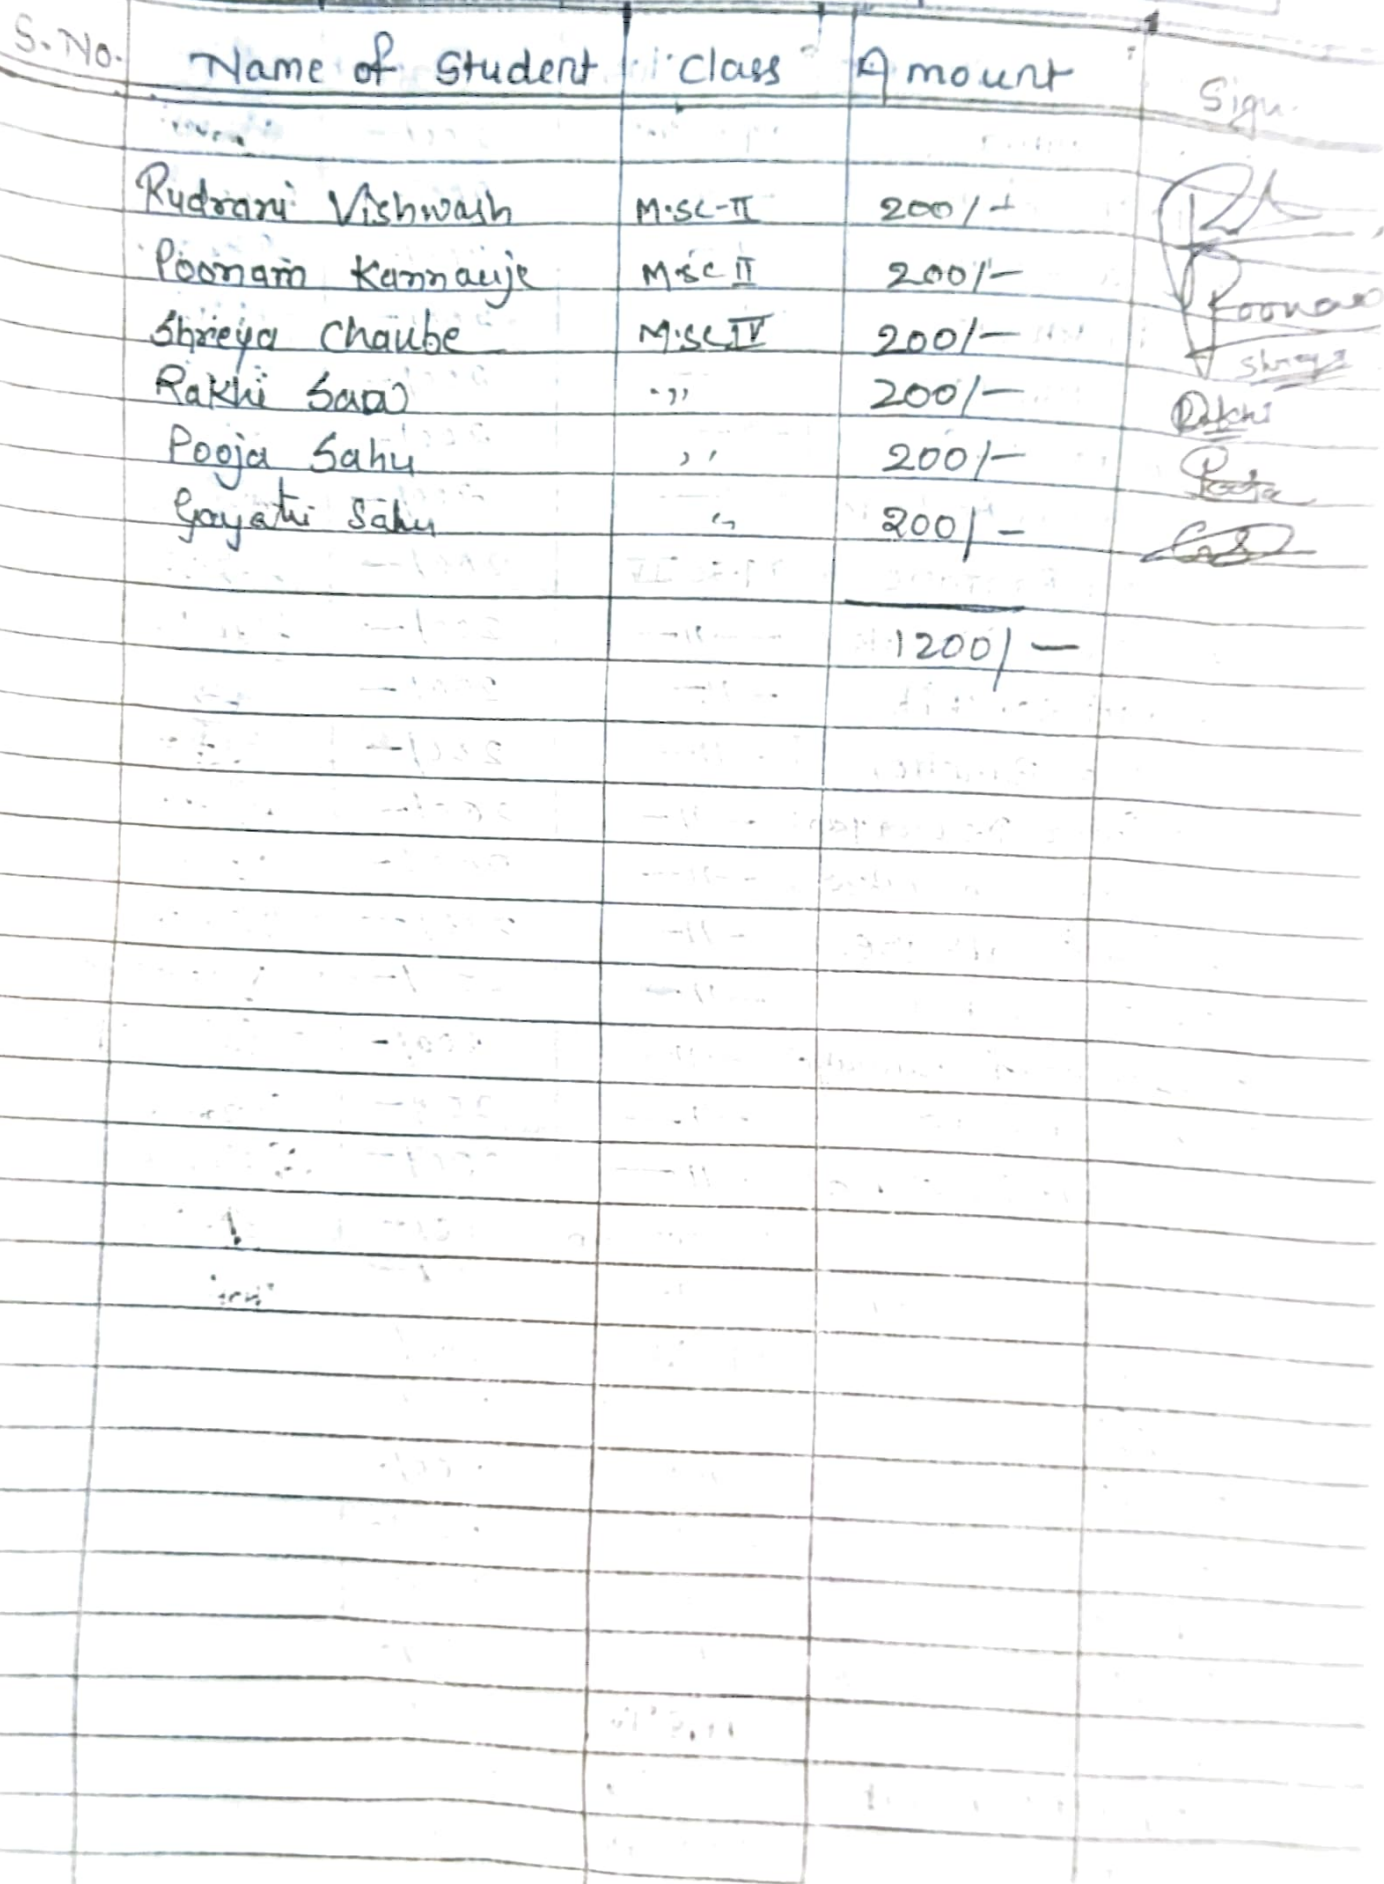 S.No. Name of Student Class Amount Sign.
Rudrani Vishwash M.SC-II 200/-
Poonam Kannauje M.SC II 200/- Poonam
Shreya Chaube M.SC IV 200/- Shreya
Rakhi Sao ,, 200/- Rakhi
Pooja Sahu ,, 200/- Pooja
Gayatri Sahu ,, 200/-
1200/-